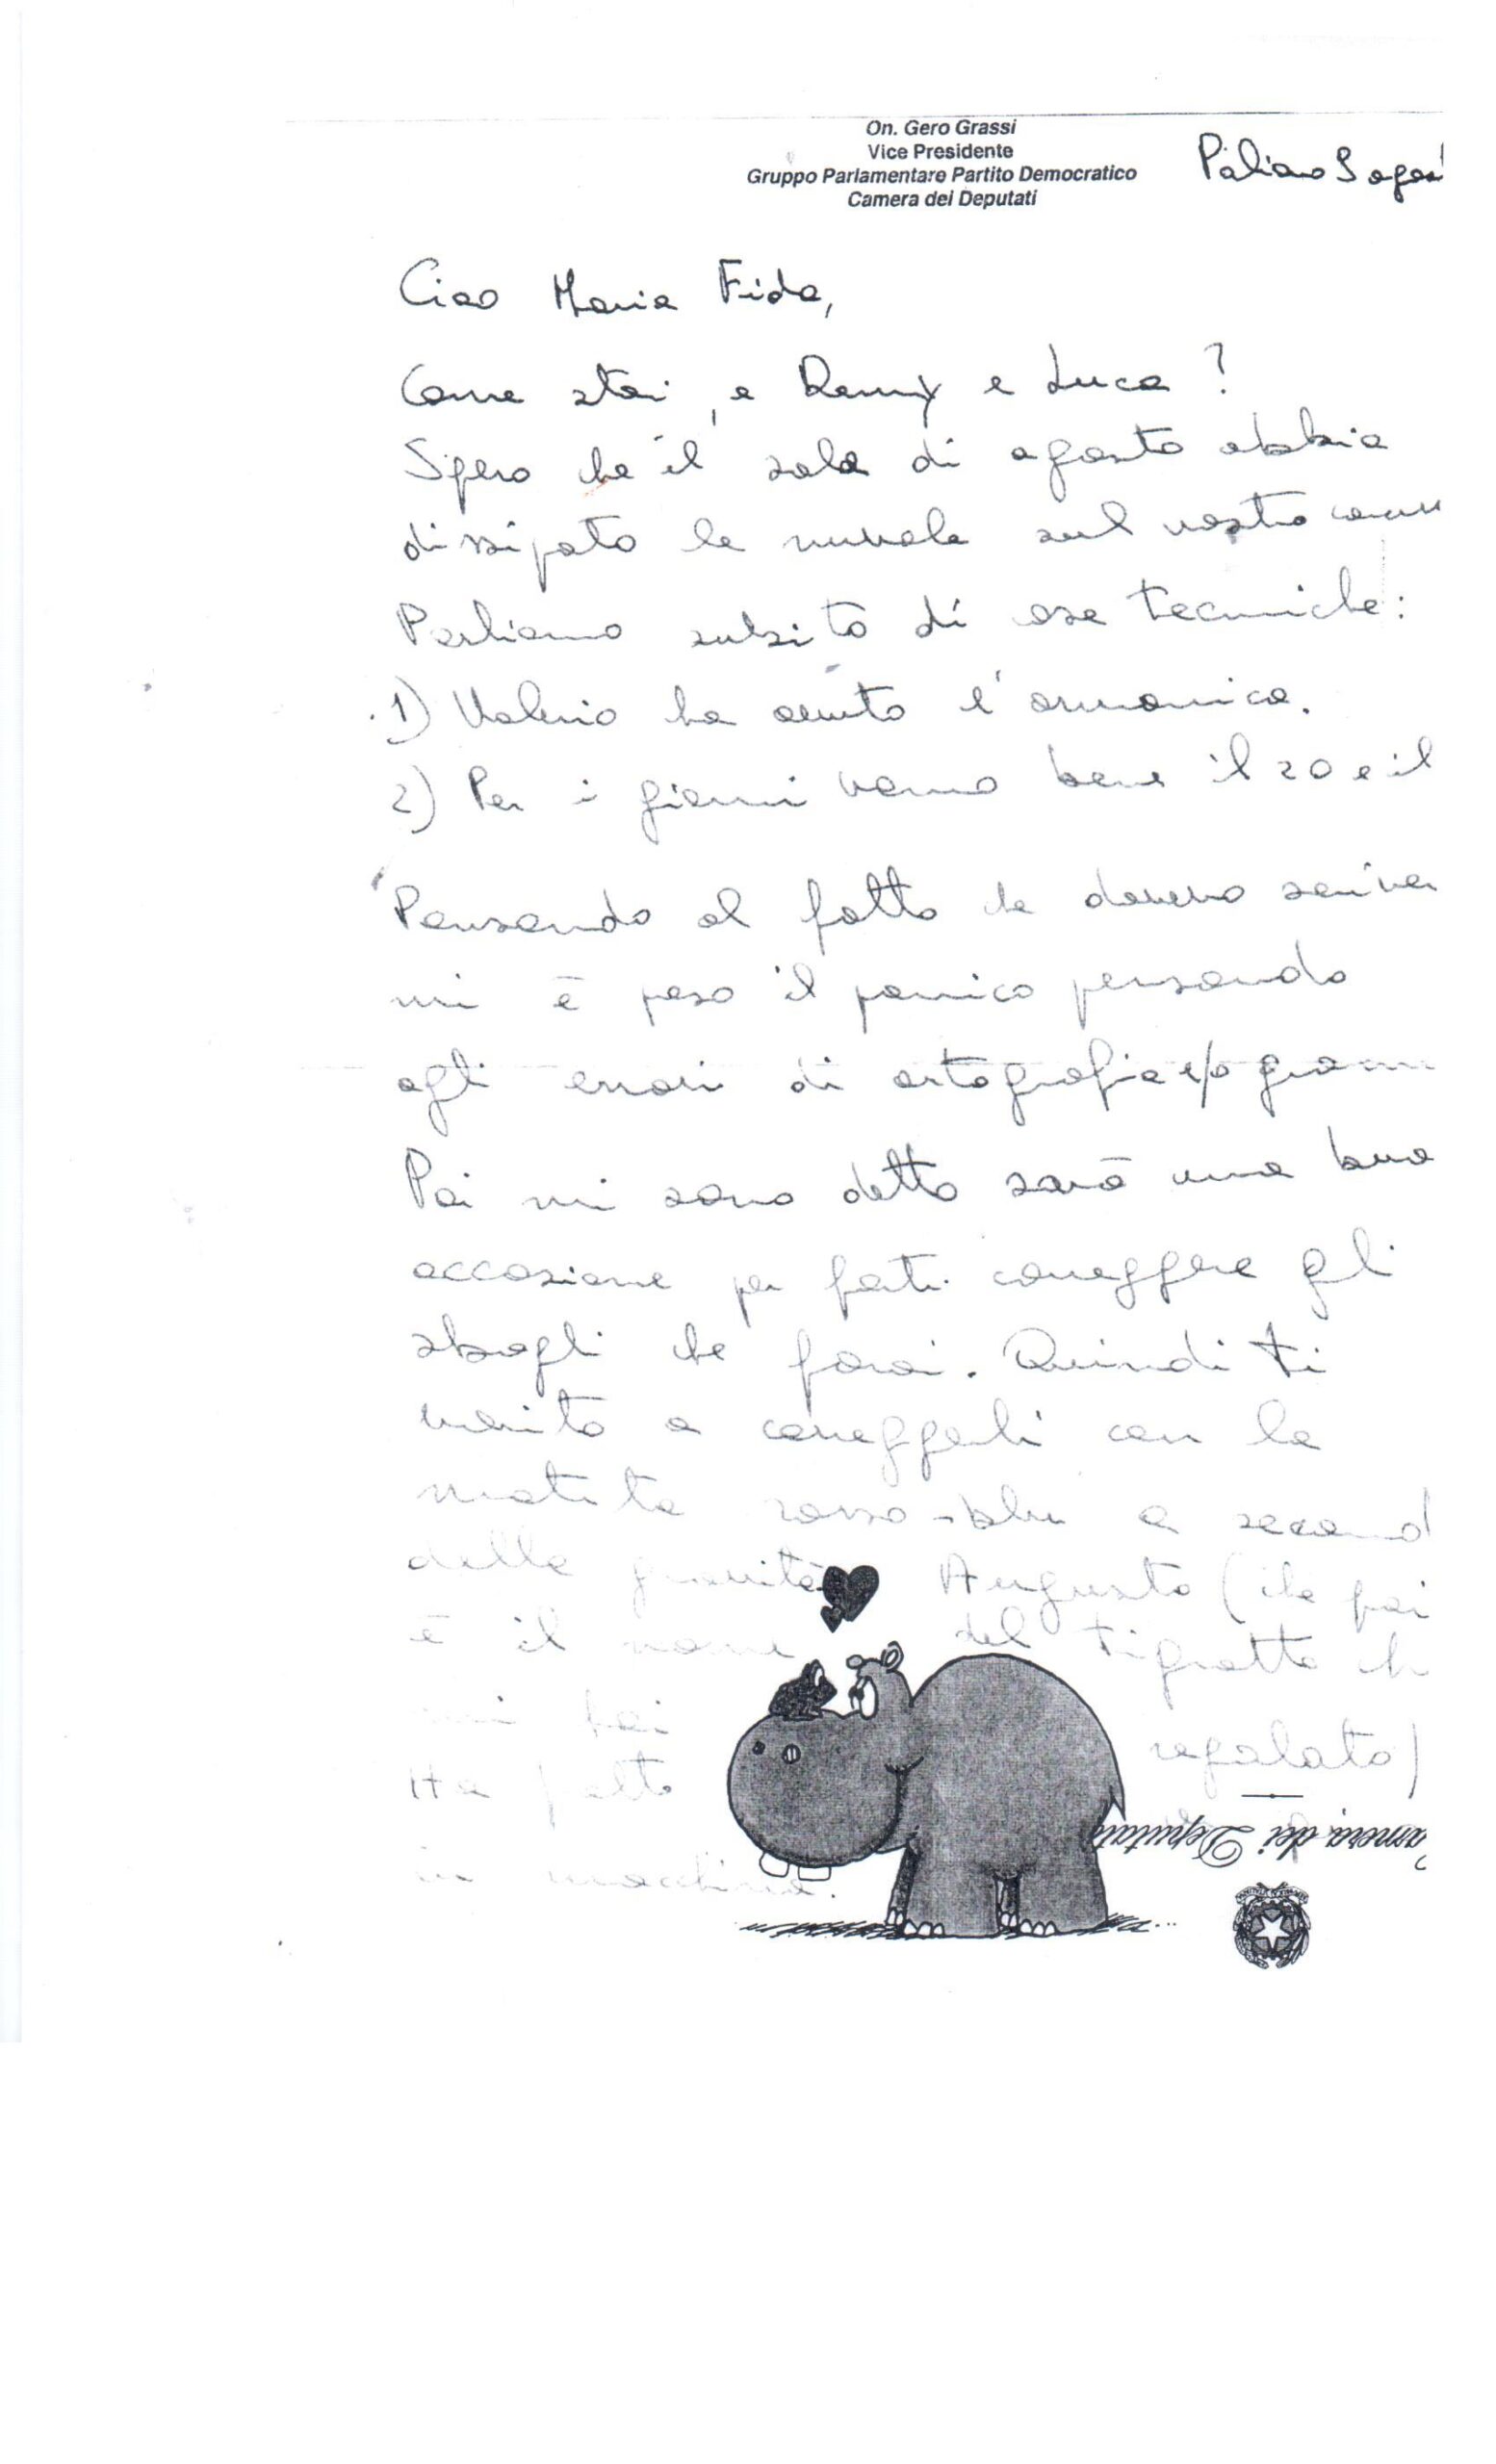 On. Gero Grassi
Vice Presidente
Gruppo Parlamentare Partito Democratico
Camera dei Deputati
Paliano
Ciao Maria Fida,
Come stai, e Demy e Luca?
Spero che il sole di agosto abbia
dissipato le nuvole sul vostro
Parliamo subito di cose tecniche:
1) Valerio ha avuto l'armonica.
2) Per i giorni vanno bene il 20 e il
Pensando al fatto che dovevo scriver
mi è preso il panico pensando
agli errori di ortografia e/o gramm
Poi mi sono detto sarà una buona
occasione per farti correggere gli
sbagli che farai. Quindi ti
invito a correggerli con la
matita rosso-blu a second
della gravità Augusto (che poi
è il nome del tigrotto ch
mi hai regalato)
Ha fatto
in macchina.
amera dei Deputati